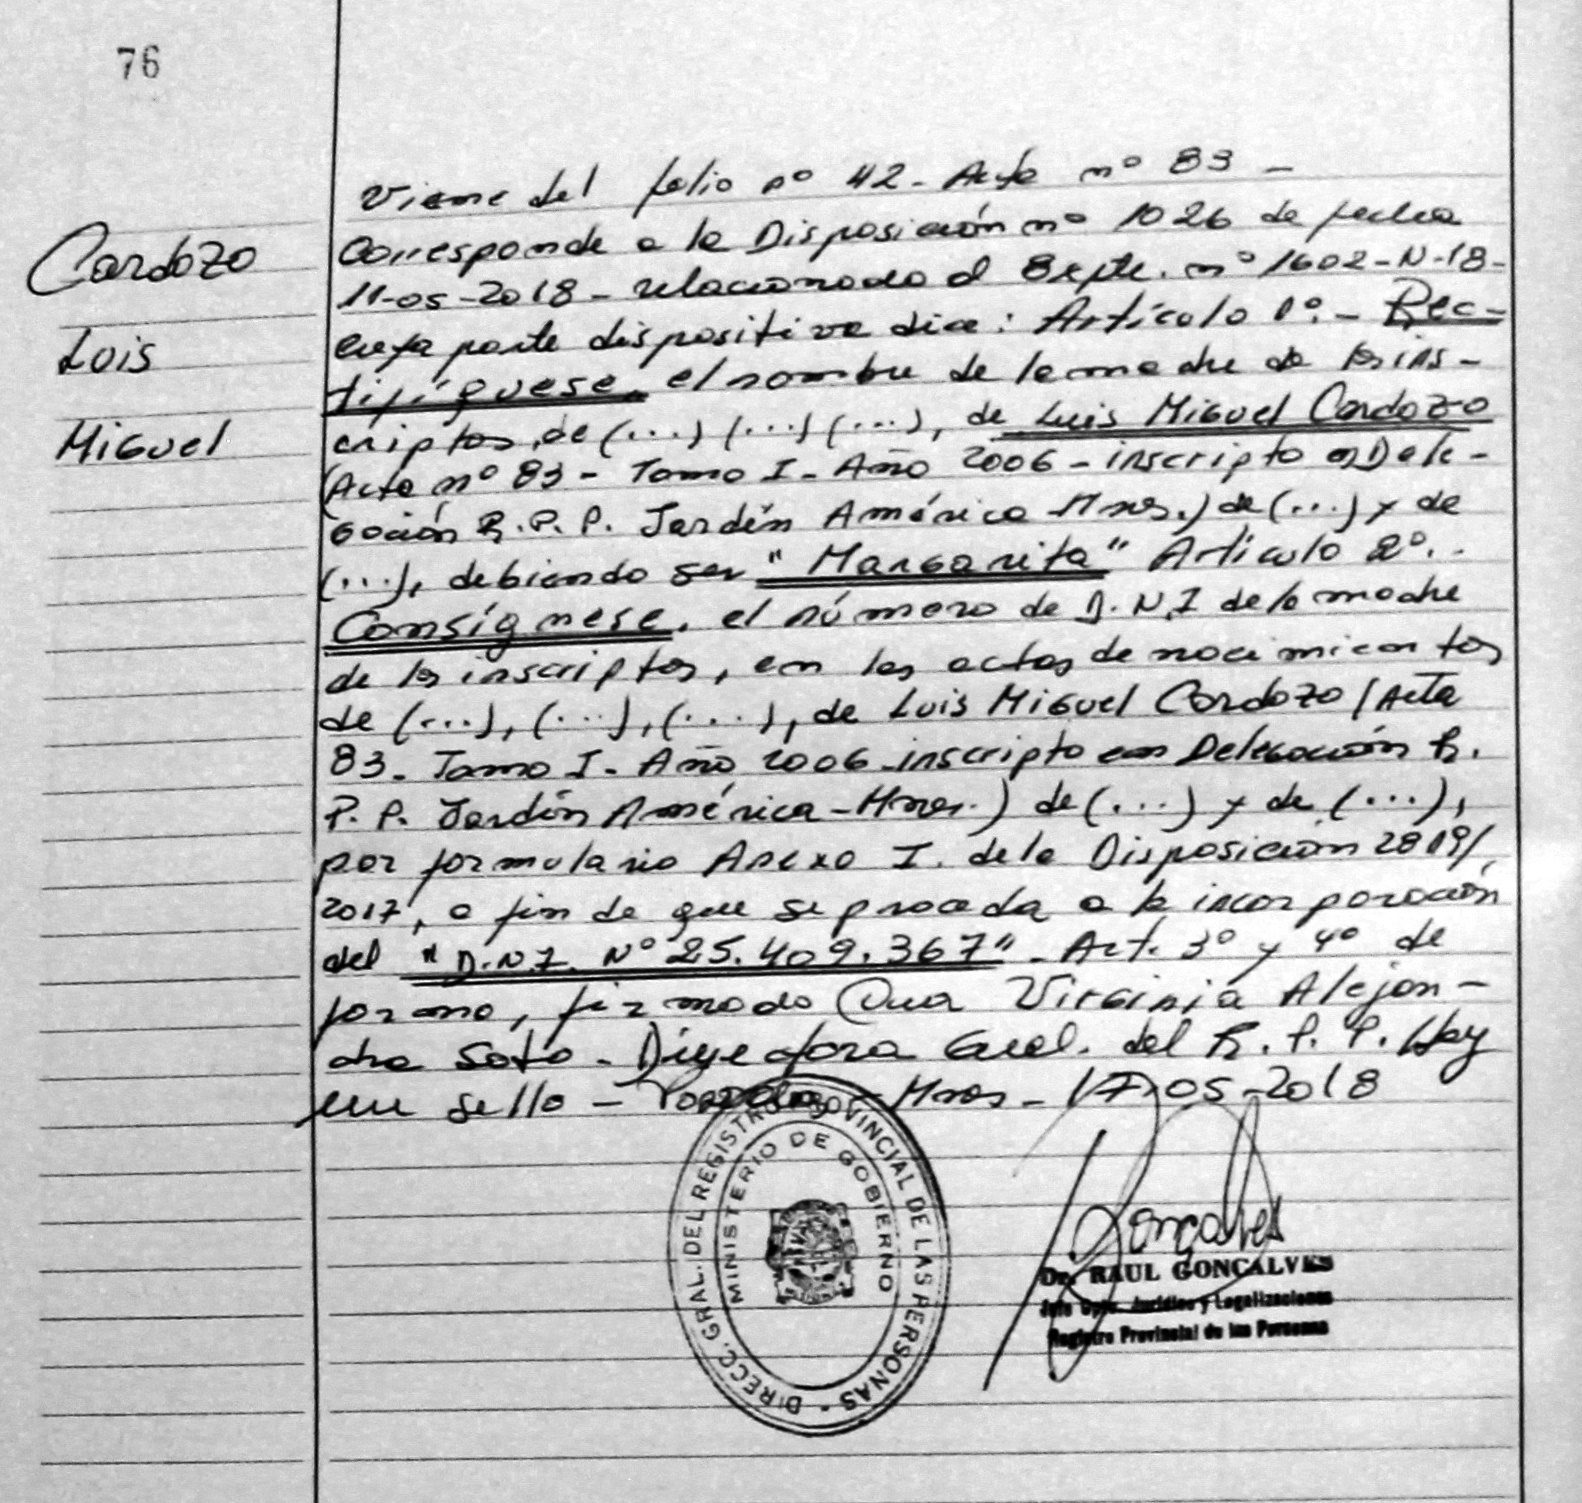 76
Viene del folio nº 42 - Acta nº 83 -
Cardozo
Luis
Miguel
Corresponde a la Disposición nº 1026 de fecha
11-05-2018 - relacionado al Expte. nº 1602-N-18-
cuya parte dispositiva dice: Artículo 1º.- Rec-
tifíquese, el nombre de la madre de los ins-
criptos, de (...) (...) (...), de Luis Miguel Cardozo
(Acta nº 83 - Tomo I - Año 2006 - inscripto en Dele-
gación R.P.P. Jardín América Mnes.) de (...) y de
(...), debiendo ser "Margarita" Artículo 2º.-
Consígnese, el número de D.N.I de la madre
de los inscriptos, en las actas de nacimientos
de (...), (...), (...), de Luis Miguel Cardozo (Acta
83 - Tomo I - Año 2006 - inscripto en Delegación R.
P.P. Jardín América - Mnes.) de (...) y de (...),
por formulario Anexo I. de la Disposición 2819/
2017, a fin de que se proceda a la incorporación
del "D.N.I. Nº 25.409.367" - Art. 3º y 4º de
forma, firmado Virginia Alejan-
dra Soto - Directora Gral. del R.P.P. Hay
un sello - Posadas - Mnes - 17-05-2018
DIRECC. GRAL. DEL REGISTRO PROVINCIAL DE LAS PERSONAS -
MINISTERIO DE GOBIERNO
Gonçalves
Dr. RAUL GONCALVES
Jefe Dpto. Jurídico y Legalizaciones
Registro Provincial de las Personas